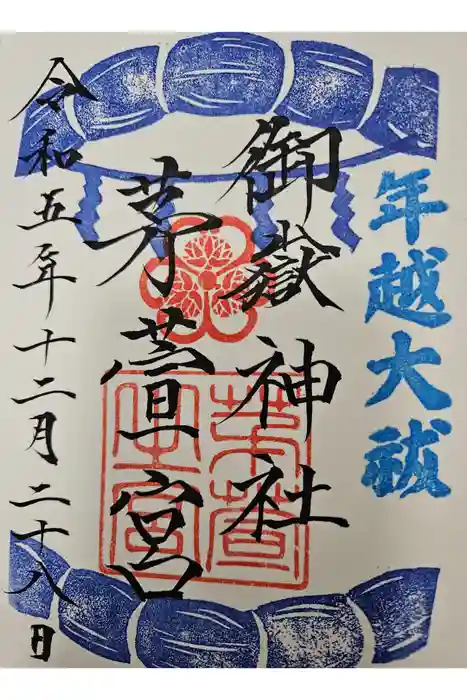 年越大祓
御嶽神社
茅萱宮
令和五年十二月二十八日
茅萱
之宮